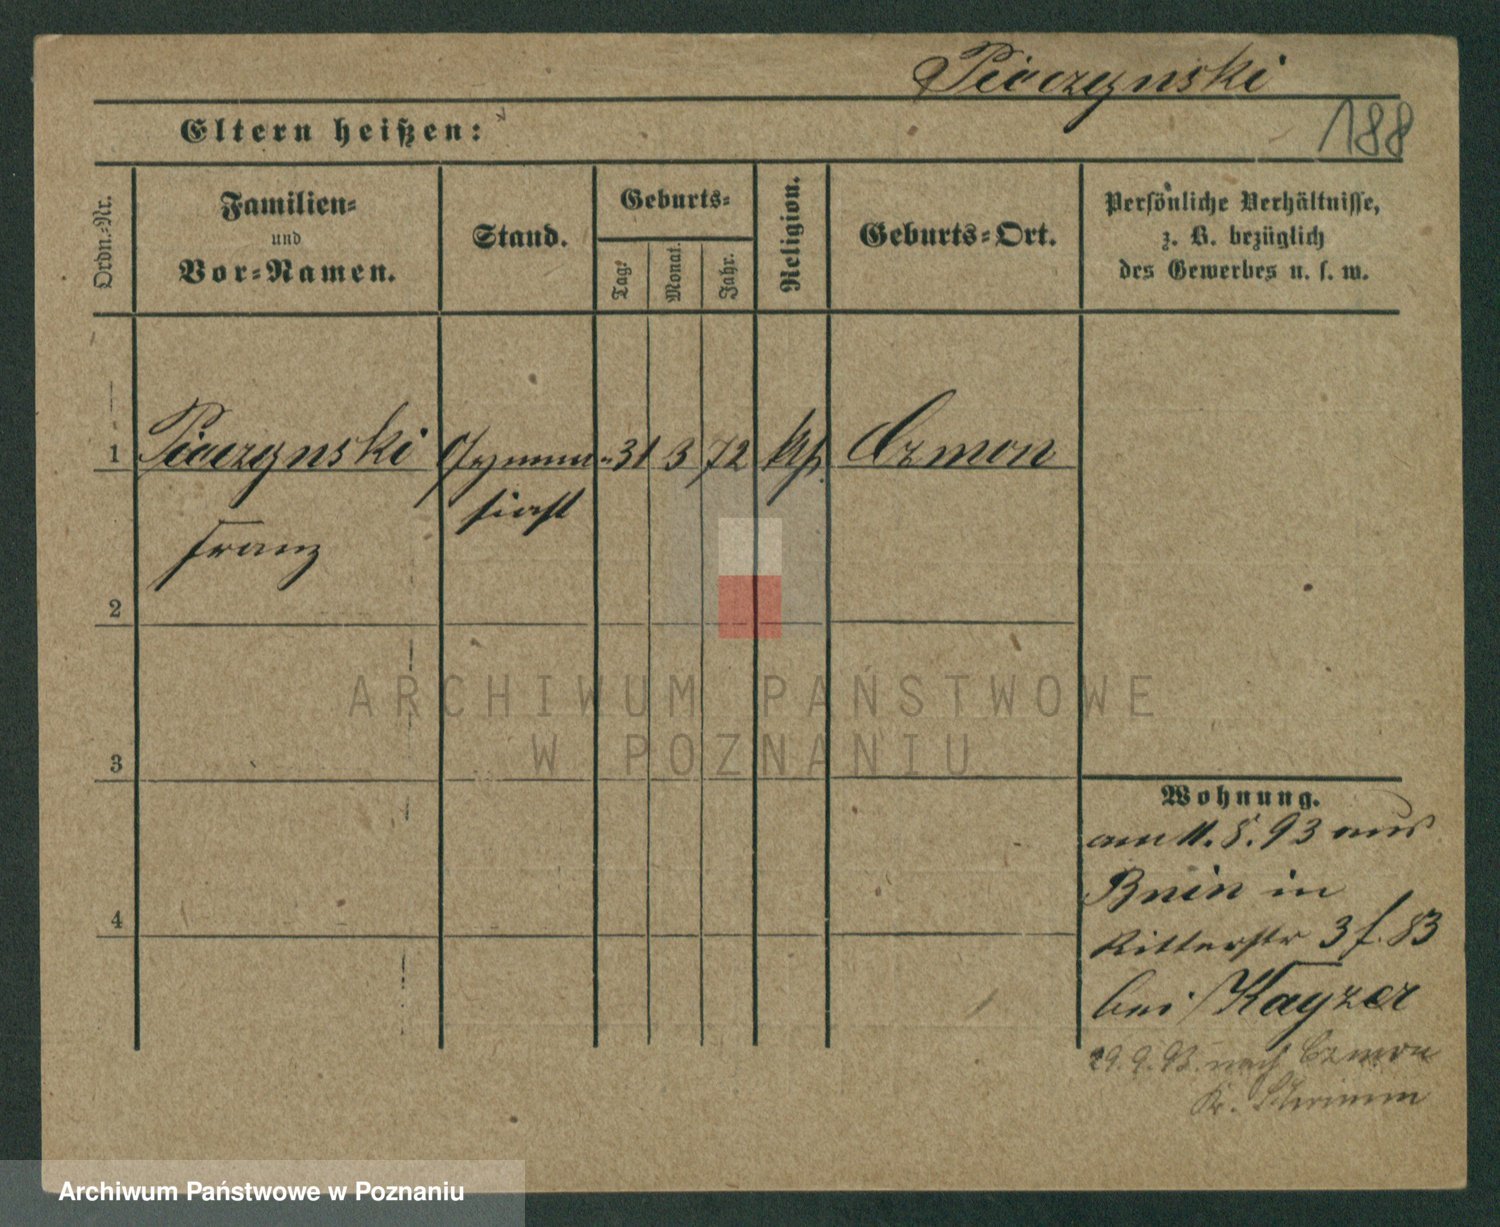 Pieczynski
188
Eltern heißen:
Ordn.-Nr.
Familien-
und
Vor-Namen.
Stand.
Geburts-
Tag.
Monat.
Jahr.
Religion.
Geburts-Ort.
Persönliche Verhältnisse,
z. B. bezüglich
des Gewerbes u. s. w.
1 Pieczynski Gymna- 31 3 72 kth. Czmon
siast
Franz
2
3
4
Wohnung.
am 11. 5. 93 aus
Bnin in
Ritterstr 3 f. 83
bei Kayzer
29. 9. 93. nach Czmon
Kr. Schrimm
ARCHIWUM PAŃSTWOWE
W POZNANIU
Archiwum Państwowe w Poznaniu